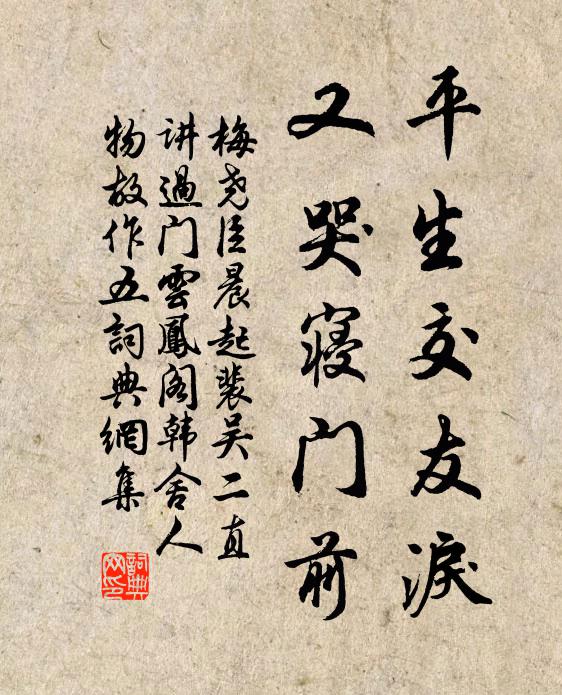 平生交友淚
又哭寢門前
梅尧臣晨起裴吴二直
讲過门雲鳳阁韩舍人
物故作五詞典網集
詞典網印